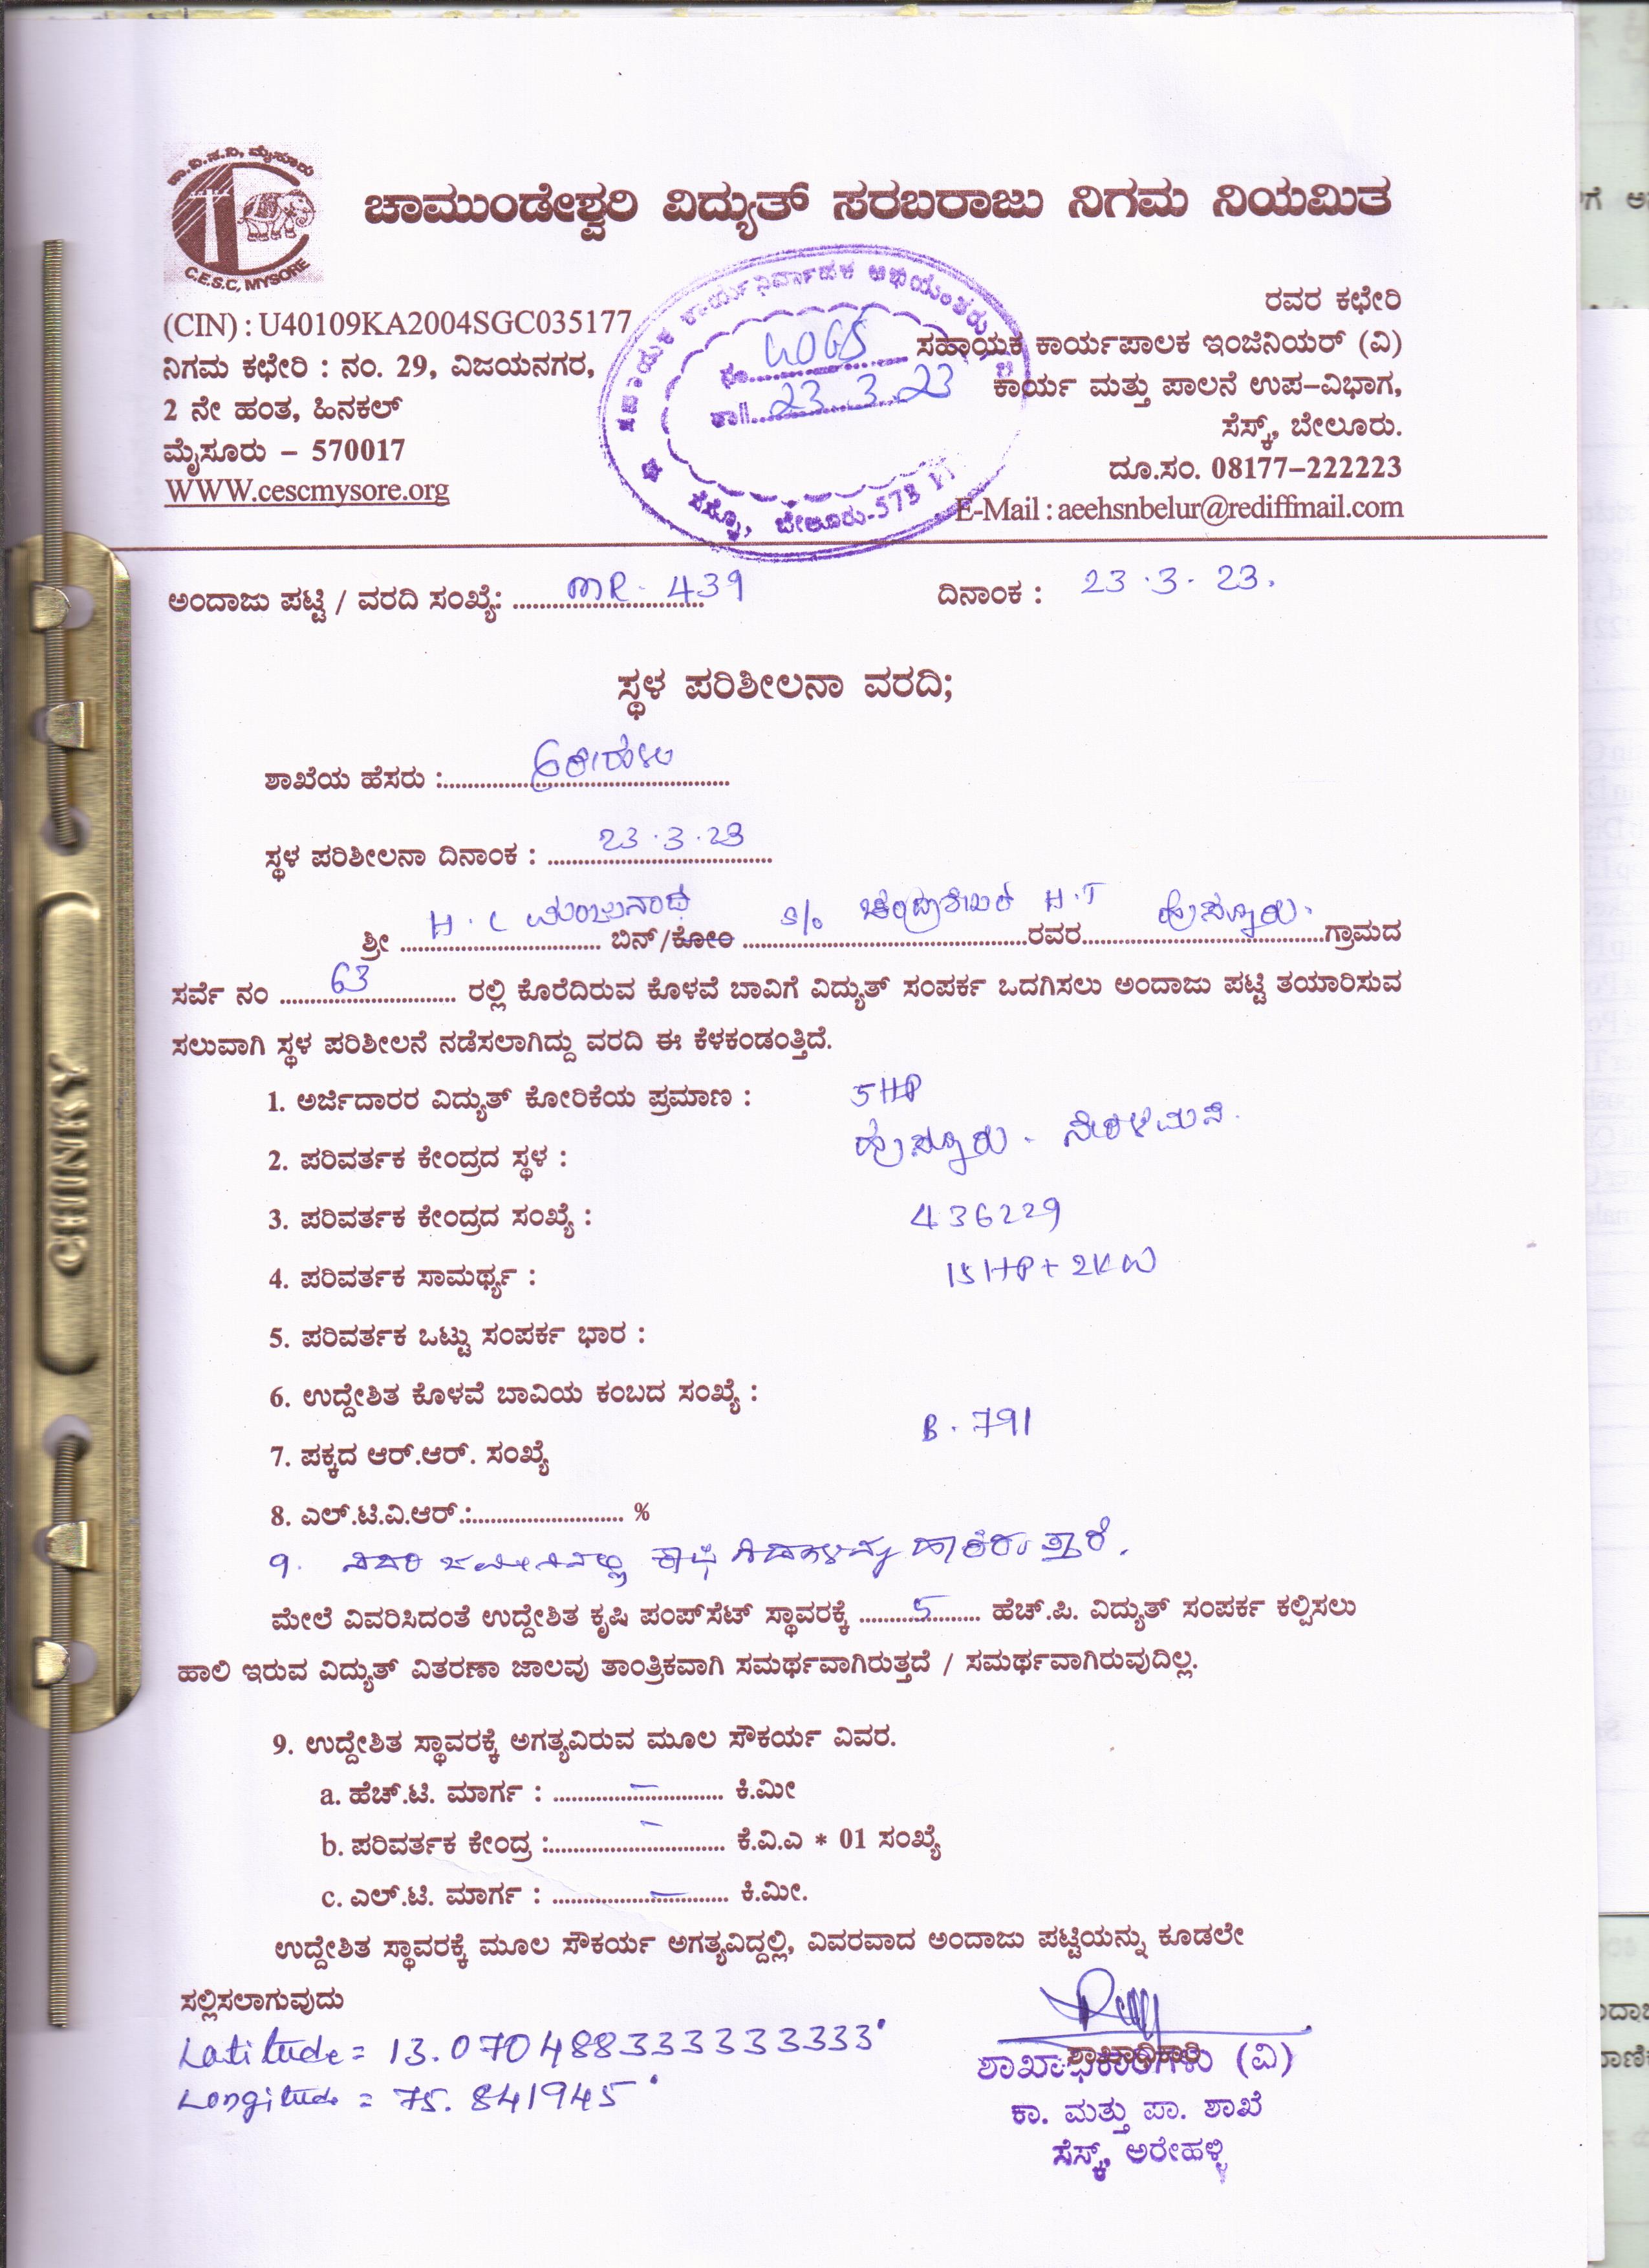 ಚಾ.ವಿ.ಸ.ನಿ, ಮೈಸೂರು
C.E.S.C, MYSORE
ಚಾಮುಂಡೇಶ್ವರಿ ವಿದ್ಯುತ್ ಸರಬರಾಜು ನಿಗಮ ನಿಯಮಿತ
(CIN) : U40109KA2004SGC035177
ನಿಗಮ ಕಛೇರಿ : ನಂ. 29, ವಿಜಯನಗರ,
2 ನೇ ಹಂತ, ಹಿನಕಲ್
ಮೈಸೂರು – 570017
WWW.cescmysore.org
ಸಹಾಯಕ ಕಾರ್ಯನಿರ್ವಾಹಕ ಅಭಿಯಂತರು
ಸಂ. 4065
ದಿ||. 23.3.23
ಸೆಸ್ಕ್, ಬೇಲೂರು-573
ರವರ ಕಛೇರಿ
ಸಹಾಯಕ ಕಾರ್ಯಪಾಲಕ ಇಂಜಿನಿಯರ್ (ವಿ)
ಕಾರ್ಯ ಮತ್ತು ಪಾಲನೆ ಉಪ–ವಿಭಾಗ,
ಸೆಸ್ಕ್, ಬೇಲೂರು.
ದೂ.ಸಂ. 08177–222223
E-Mail : aeehsnbelur@rediffmail.com
ಅಂದಾಜು ಪಟ್ಟಿ / ವರದಿ ಸಂಖ್ಯೆ: MR - 439 ದಿನಾಂಕ : 23.3.23.
ಸ್ಥಳ ಪರಿಶೀಲನಾ ವರದಿ;
ಶಾಖೆಯ ಹೆಸರು : ಅರೇಹಳ್ಳಿ
ಸ್ಥಳ ಪರಿಶೀಲನಾ ದಿನಾಂಕ : 23.3.23
ಶ್ರೀ H.C ಮಂಜುನಾಥ ಬಿನ್/ಕೋಂ S/o ಚಂದ್ರಶೇಖರ H.T ರವರ ಗ್ರಾಮದ
ಸರ್ವೆ ನಂ 63 ರಲ್ಲಿ ಕೊರೆದಿರುವ ಕೊಳವೆ ಬಾವಿಗೆ ವಿದ್ಯುತ್ ಸಂಪರ್ಕ ಒದಗಿಸಲು ಅಂದಾಜು ಪಟ್ಟಿ ತಯಾರಿಸುವ
ಸಲುವಾಗಿ ಸ್ಥಳ ಪರಿಶೀಲನೆ ನಡೆಸಲಾಗಿದ್ದು ವರದಿ ಈ ಕೆಳಕಂಡಂತ್ತಿದೆ.
1. ಅರ್ಜಿದಾರರ ವಿದ್ಯುತ್ ಕೋರಿಕೆಯ ಪ್ರಮಾಣ : 5HP
2. ಪರಿವರ್ತಕ ಕೇಂದ್ರದ ಸ್ಥಳ :
3. ಪರಿವರ್ತಕ ಕೇಂದ್ರದ ಸಂಖ್ಯೆ : 436229
4. ಪರಿವರ್ತಕ ಸಾಮರ್ಥ್ಯ : 15HP+2KW
5. ಪರಿವರ್ತಕ ಒಟ್ಟು ಸಂಪರ್ಕ ಭಾರ :
6. ಉದ್ದೇಶಿತ ಕೊಳವೆ ಬಾವಿಯ ಕಂಬದ ಸಂಖ್ಯೆ :
7. ಪಕ್ಕದ ಆರ್.ಆರ್. ಸಂಖ್ಯೆ B.791
8. ಎಲ್.ಟಿ.ವಿ.ಆರ್.:.......................... %
9. ಸದರಿ ಜಮೀನಿನಲ್ಲಿ ಕಾಫಿ ಗಿಡಗಳನ್ನು ಹಾಕಿರುತ್ತಾರೆ.
ಮೇಲೆ ವಿವರಿಸಿದಂತೆ ಉದ್ದೇಶಿತ ಕೃಷಿ ಪಂಪ್‌ಸೆಟ್ ಸ್ಥಾವರಕ್ಕೆ 5 ಹೆಚ್.ಪಿ. ವಿದ್ಯುತ್ ಸಂಪರ್ಕ ಕಲ್ಪಿಸಲು
ಹಾಲಿ ಇರುವ ವಿದ್ಯುತ್ ವಿತರಣಾ ಜಾಲವು ತಾಂತ್ರಿಕವಾಗಿ ಸಮರ್ಥವಾಗಿರುತ್ತದೆ / ಸಮರ್ಥವಾಗಿರುವುದಿಲ್ಲ.
9. ಉದ್ದೇಶಿತ ಸ್ಥಾವರಕ್ಕೆ ಅಗತ್ಯವಿರುವ ಮೂಲ ಸೌಕರ್ಯ ವಿವರ.
a. ಹೆಚ್.ಟಿ. ಮಾರ್ಗ : – ಕಿ.ಮೀ
b. ಪರಿವರ್ತಕ ಕೇಂದ್ರ : – ಕೆ.ವಿ.ಎ * 01 ಸಂಖ್ಯೆ
c. ಎಲ್.ಟಿ. ಮಾರ್ಗ : – ಕಿ.ಮೀ.
ಉದ್ದೇಶಿತ ಸ್ಥಾವರಕ್ಕೆ ಮೂಲ ಸೌಕರ್ಯ ಅಗತ್ಯವಿದ್ದಲ್ಲಿ, ವಿವರವಾದ ಅಂದಾಜು ಪಟ್ಟಿಯನ್ನು ಕೂಡಲೇ
ಸಲ್ಲಿಸಲಾಗುವುದು
Latitude = 13.0704883333333333°
Longitude = 75.841945°
ಶಾಖಾಧಿಕಾರಿ
ಶಾಖಾಧಿಕಾರಿಗಳು (ವಿ)
ಕಾ. ಮತ್ತು ಪಾ. ಶಾಖೆ
ಸೆಸ್ಕ್, ಅರೇಹಳ್ಳಿ
CHINKY